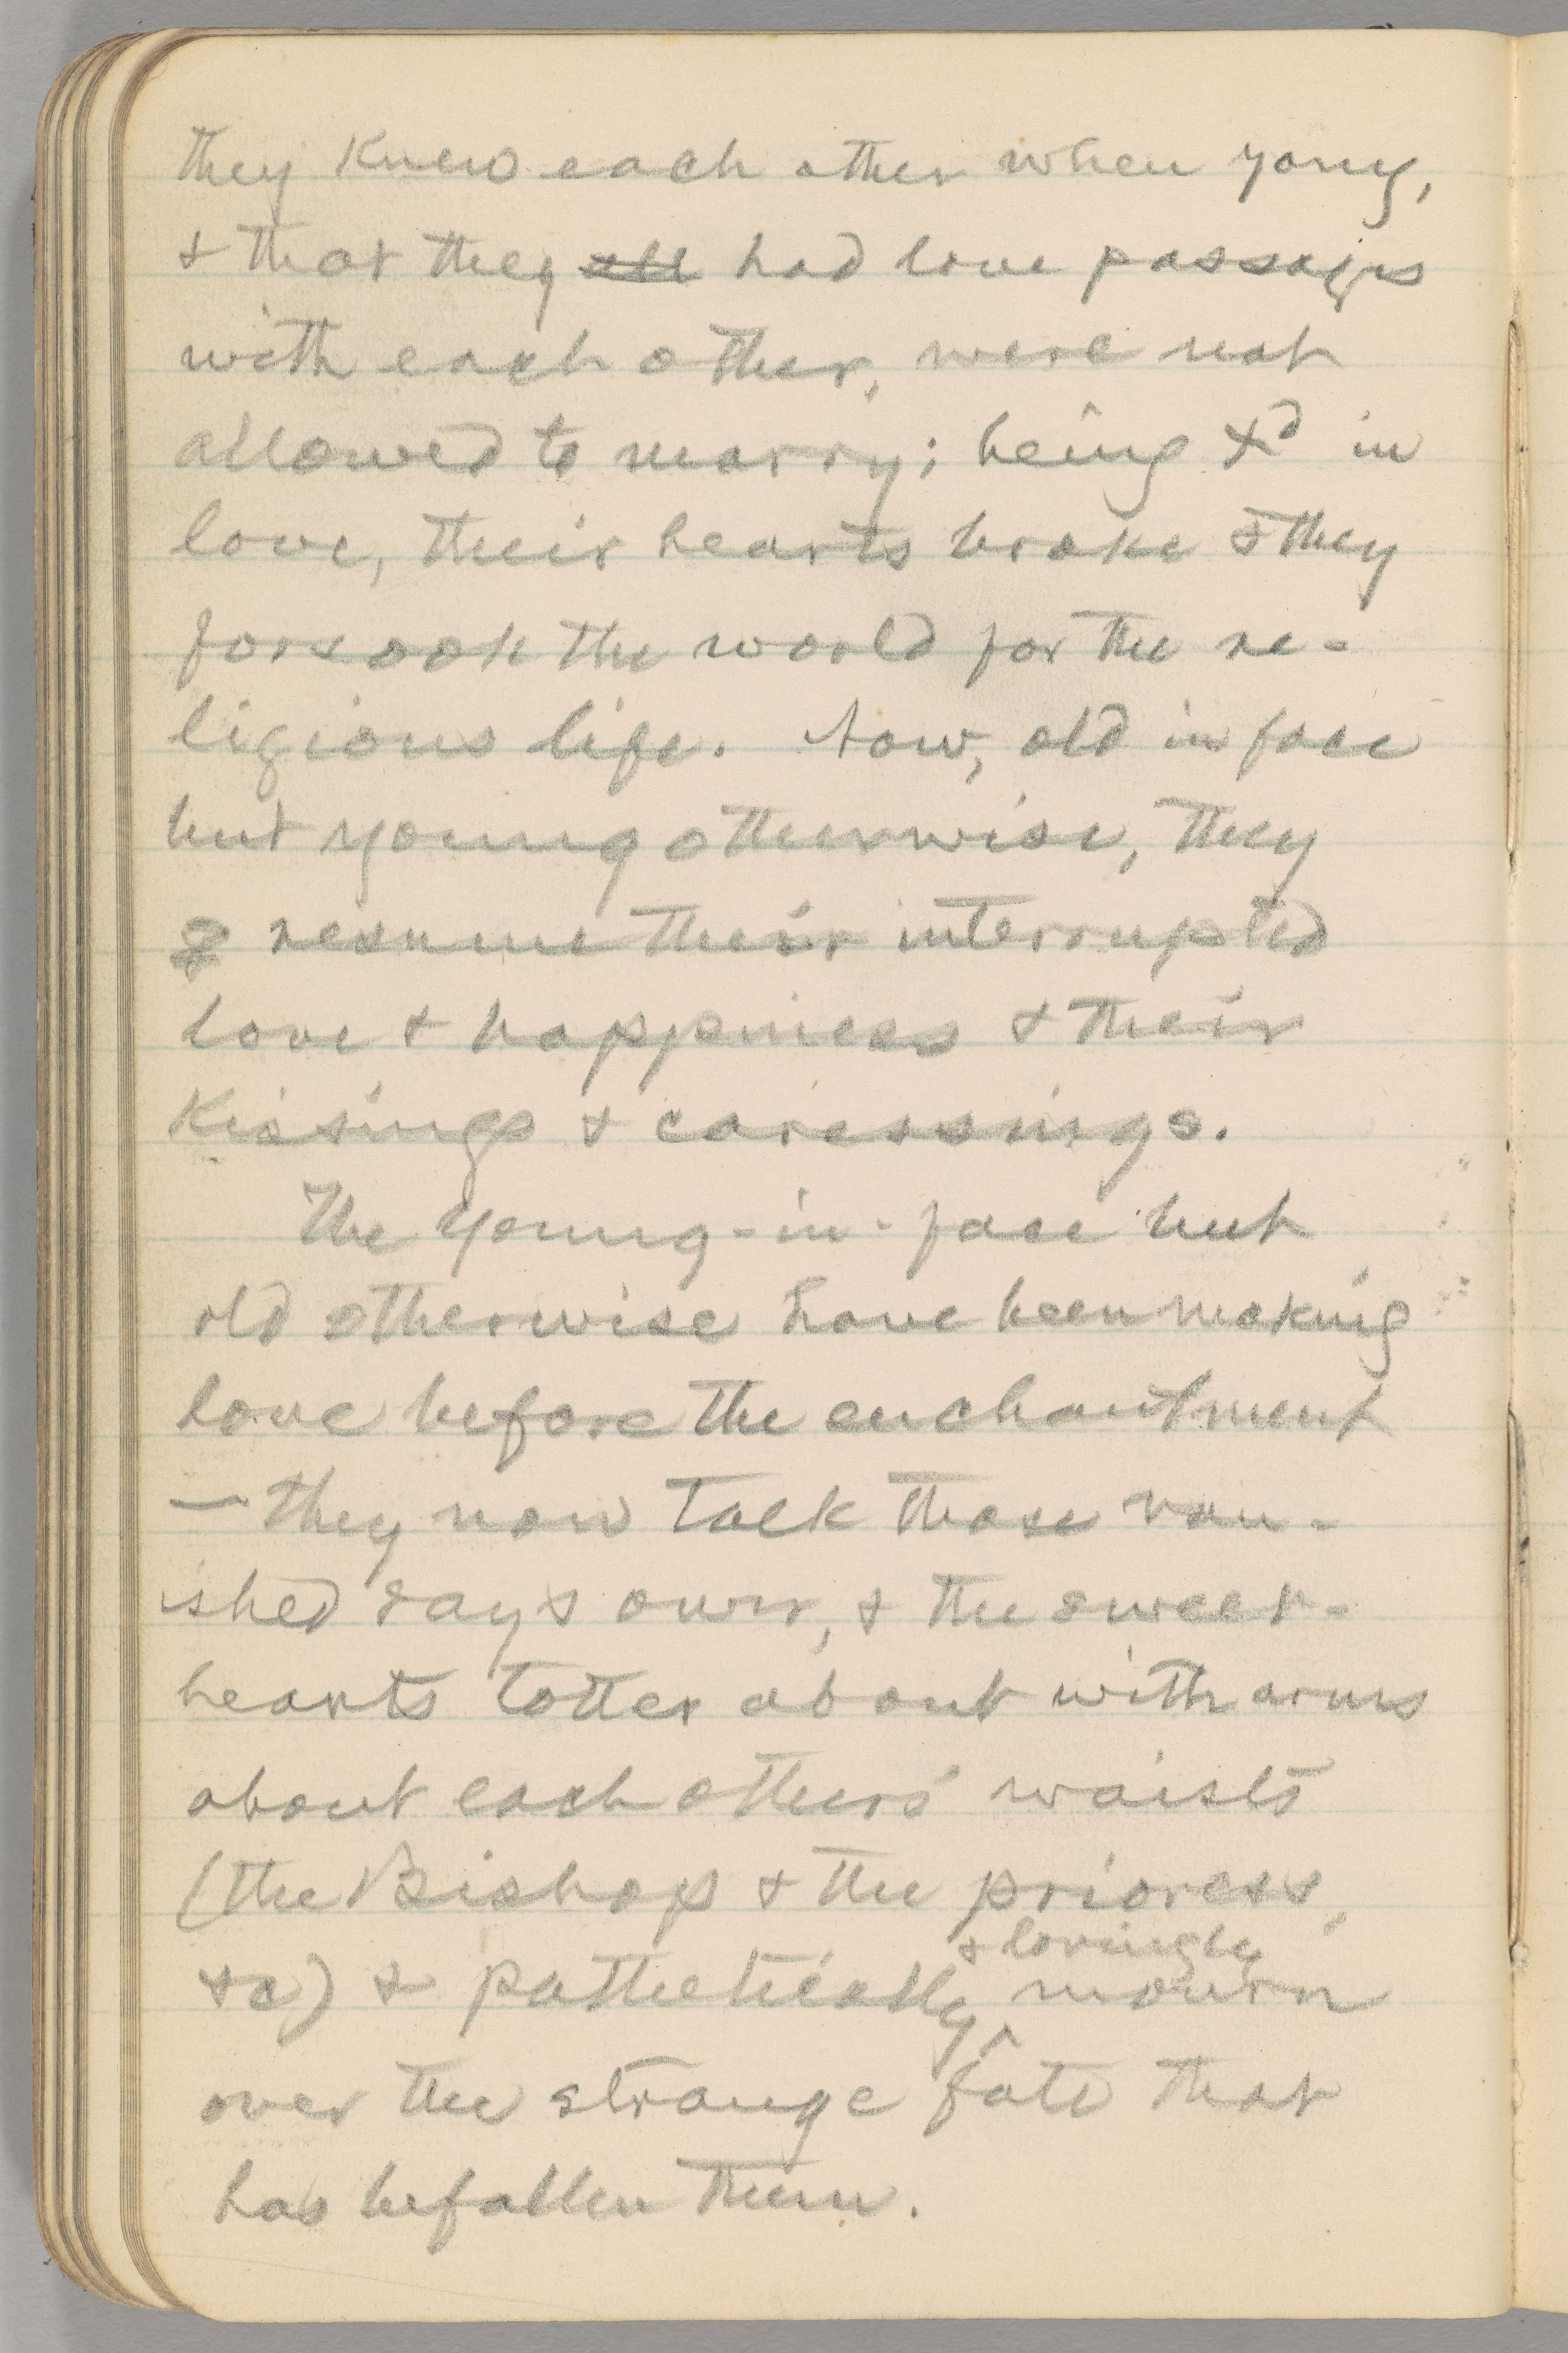 they knew each other when yong,
& that they all had love passages
with each other, were not
allowed to marry; being Xd in
love, their hearts broke & they
forsook the world for the re-
ligious life. Now, old in face
but young otherwise, they
resume their interrupted
love & happiness & their
kissings & caressings.
The young-in-face but
old otherwise have been making
love before the enchantment
— they now talk those van-
ished days over, & the sweet-
hearts totter about with arms
about each others' waists
(the Bishop & the prioress,
& lovingly
&c) & pathetically ^ mourn
over the strange fate that
has befallen them.